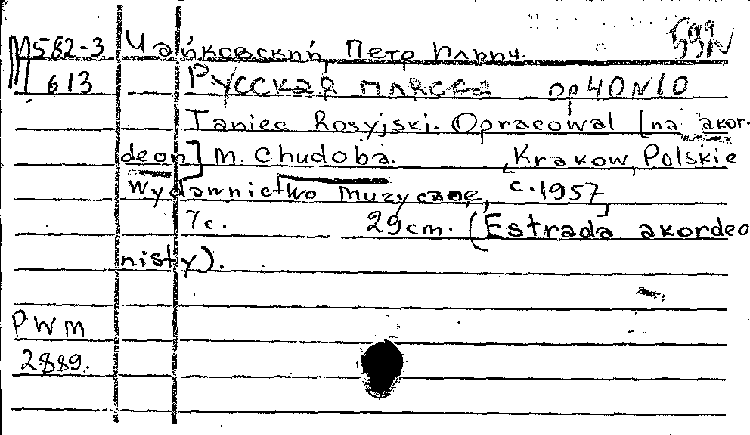 М582-3 Чайковский, Петр Ильич.
613 Русская пляска op 40 N 10
Taniec Rosyjski. Opracował [na akor-
deon] M. Chudoba. Krakow, Polskie
Wydawnictwo Muzyczne, c. 1957,
7c. 29cm. (Estrada akordeo
nisty).
PWM
2889.